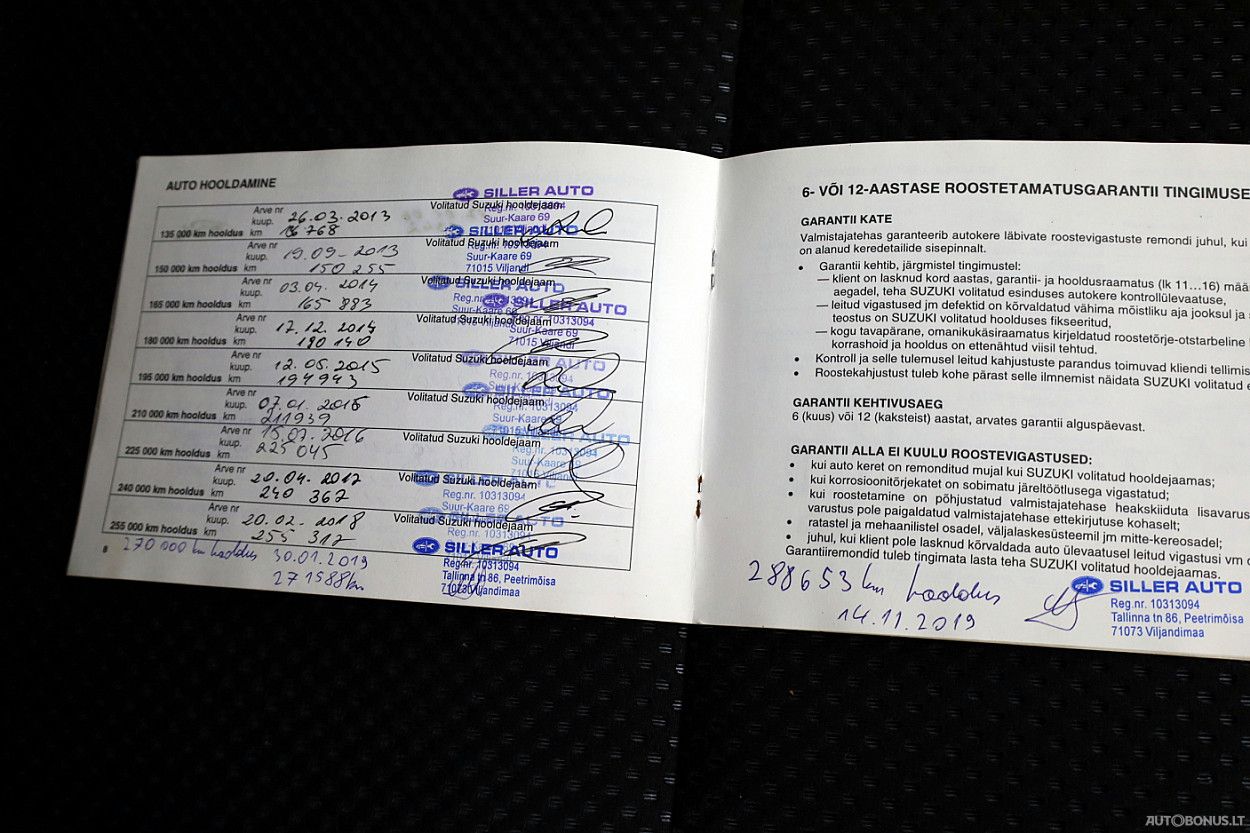 AUTO HOOLDAMINE
SILLER AUTO
Arve nr
kuup. 26.03.2013
Volitatud Suzuki hooldejaam
Reg.nr. 10313094
Suur-Kaare 69
135 000 km hooldus km
SILLER AUTO
Arve nr
kuup. 19.09-2013
Volitatud Suzuki hooldejaam
Reg.nr. 10313094
Suur-Kaare 69
71015 Viljandi
150 000 km hooldus km 150 255
Arve nr
kuup. 03.04.2014
Volitatud Suzuki hooldejaam
165 000 km hooldus km 165 883
SILLER AUTO
Arve nr
kuup. 17.12.2014
Volitatud Suzuki hooldejaam
Suur-Kaare 69
71015 Viljandi
180 000 km hooldus km 180 140
Arve nr
kuup. 12.05.2015
Volitatud Suzuki hooldejaam
195 000 km hooldus km 194943
Arve nr
kuup. 07.01.2016
Volitatud Suzuki hooldejaam
Reg.nr. 10313094
Suur-Kaare 69
210 000 km hooldus km 211939
kuup. 15.07.2016
Volitatud Suzuki hooldejaam
225 000 km hooldus km 225 045
Arve nr
kuup. 20.04.2017
Volitatud Suzuki hooldejaam
Reg.nr. 10313094
Suur-Kaare 69
240 000 km hooldus km 240 362
Arve nr
kuup. 20.02.2018
Volitatud Suzuki hooldejaam
255 000 km hooldus km 255 317
8
270 000 km hooldus 30.01.2019
271588km
SILLER AUTO
Reg.nr. 10313094
Tallinna tn 86, Peetrimõisa
71073 Viljandimaa
6- VÕI 12-AASTASE ROOSTETAMATUSGARANTII TINGIMUSE
GARANTII KATE
Valmistajatehas garanteerib autokere läbivate roostevigastuste remondi juhul, kui
on alanud keredetailide sisepinnalt.
• Garantii kehtib, järgmistel tingimustel:
— klient on lasknud kord aastas, garantii- ja hooldusraamatus (lk 11…16) mää
aegadel, teha SUZUKI volitatud esinduses autokere kontrollülevaatuse,
— leitud vigastused jm defektid on kõrvaldatud vähima mõistliku aja jooksul ja
teostus on SUZUKI volitatud hoolduses fikseeritud,
— kogu tavapärane, omanikukäsiraamatus kirjeldatud roostetõrje-otstarbeline
korrashoid ja hooldus on ettenähtud viisil tehtud.
• Kontroll ja selle tulemusel leitud kahjustuste parandus toimuvad kliendi tellimis
• Roostekahjustust tuleb kohe pärast selle ilmnemist näidata SUZUKI volitatud
GARANTII KEHTIVUSAEG
6 (kuus) või 12 (kaksteist) aastat, arvates garantii alguspäevast.
GARANTII ALLA EI KUULU ROOSTEVIGASTUSED:
• kui auto keret on remonditud mujal kui SUZUKI volitatud hooldejaamas;
• kui korrosioonitõrjekatet on sobimatu järeltöötlusega vigastatud;
• kui roostetamine on põhjustatud valmistajatehase heakskiiduta lisavarus
varustus pole paigaldatud valmistajatehase ettekirjutuse kohaselt;
• ratastel ja mehaanilistel osadel, väljalaskesüsteemil jm mitte-kereosadel;
• juhul, kui klient pole lasknud kõrvaldada auto ülevaatusel leitud vigastusi vm
Garantiiremondid tuleb tingimata lasta teha SUZUKI volitatud hooldejaamas.
288653 km hooldus
14.11.2019
SILLER AUTO
Reg.nr. 10313094
Tallinna tn 86, Peetrimõisa
71073 Viljandimaa
AUTOBONUS.LT